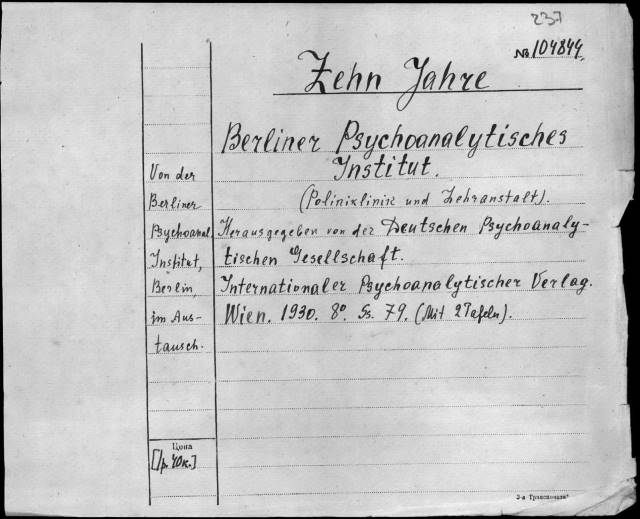 237
№ 104844.
Zehn Jahre
Berliner Psychoanalytisches
Institut.
(Poliniklinik und Lehranstalt).
Herausgegeben von der Deutschen Psychoanaly-
tischen Gesellschaft.
Internationaler Psychoanalytischer Verlag.
Wien. 1930. 8º. Ss. 79. (Mit 2 Tafeln).
Von der
Berliner
Psychoanal.
Institut,
Berlin,
im Aus-
tausch.
Цена
[1р. 40к.]
3-я Транспечать